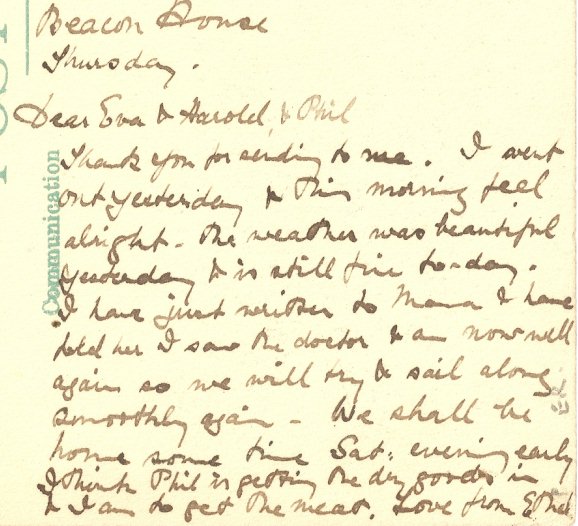 POST
Communication
Beacon House
Thursday.
Dear Eva & Harold, & Phil
Thank you for sending to me. I went
out yesterday & this morning feel
alright - the weather was beautiful
yesterday & is still fine to-day.
I have just written to Mama & have
told her I saw the doctor & am now well
again so we will try & sail along
smoothly again - We shall be
home some time Sat: evening early
I think Phil is getting the dry goods in
& I am to get the meat. Love from Ethel